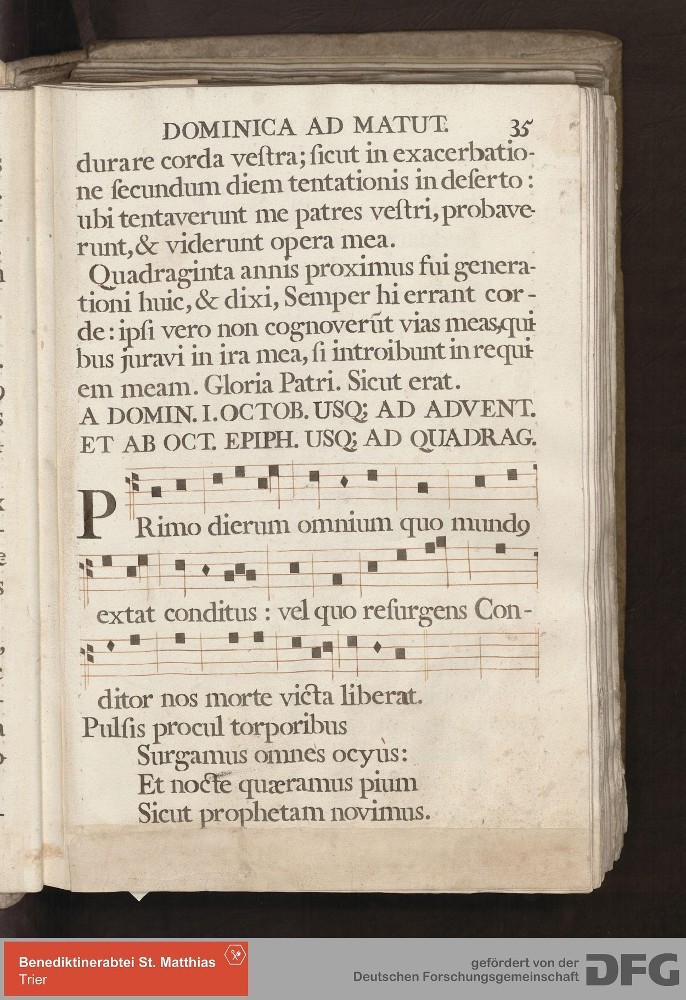 DOMINICA AD MATUT. 35
durare corda veſtra; ſicut in exacerbatio-
ne ſecundum diem tentationis in deſerto:
ubi tentaverunt me patres veſtri, probave-
runt, & viderunt opera mea.
Quadraginta annis proximus fui genera-
tioni huic, & dixi, Semper hi errant cor-
de: ipſi vero non cognoverūt vias meas, qui-
bus juravi in ira mea, ſi introibunt in requi-
em meam. Gloria Patri. Sicut erat.
A DOMIN. I. OCTOB. USQ; AD ADVENT.
ET AB OCT. EPIPH. USQ; AD QUADRAG.
PRimo dierum omnium quo mundꝰ
extat conditus: vel quo reſurgens Con-
ditor nos morte victa liberat.
Pulſis procul torporibus
Surgamus omnes ocyùs:
Et nocte quæramus pium
Sicut prophetam novimus.
Benediktinerabtei St. Matthias
Trier
gefördert von der
Deutschen Forschungsgemeinschaft DFG